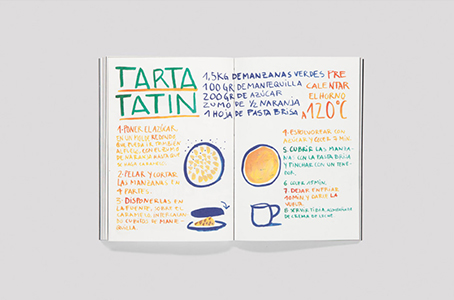 TARTA
TATIN
1,5KG DE MANZANAS VERDES
100 GR DE MANTEQUILLA
200 GR DE AZÚCAR
ZUMO DE ½ NARANJA
1 HOJA DE PASTA BRISA
PRE
CALENTAR
EL HORNO
A 120°C
1. PONER EL AZÚCAR
2. PELAR Y CORTAR
LAS MANZANAS EN
4 PARTES.
3. DISPONERLAS EN
LA FUENTE, SOBRE EL
4. ESPOLVOREAR CON
AZÚCAR Y
5. CUBRIR LAS MANZA-
NAS CON LA PASTA BRISA
Y PINCHAR CON UN TENE-
DOR.
6. COCER 45 MIN.
7. DEJAR ENFRIAR
10 MIN Y DARLE LA
VUELTA.
8. SERVIR TIBIA,
DE CREMA DE LECHE.